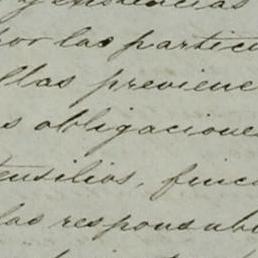 por las particu
llas previene
s obligacione
tensilios, finca
las responsab